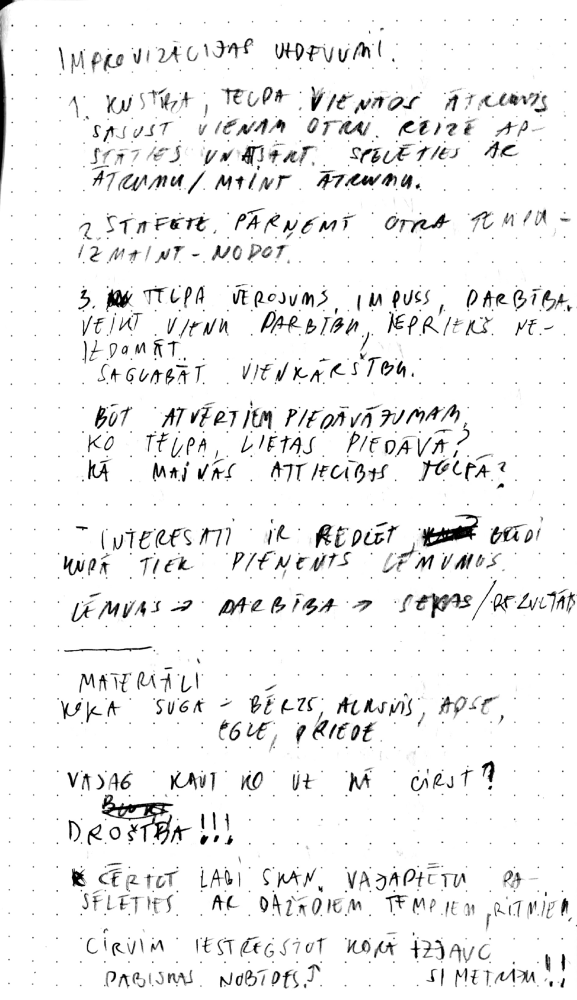 IMPROVIZĀCIJAS UZDEVUMI.
1. KUSTĪBA, TELPA VIENĀDS ĀTRUMS
SAJUST VIENAM OTRU. REIZĒ AP-
STĀTIES UN ATSĀKT. SPĒLĒTIES AR
ĀTRUMU/MAINT ĀTRUMU.
2. STAFETE. PĀRŅEMT OTRA TEMPU -
IZMAINT - NODOT.
3. TELPA VĒROJUMS, IMPULSS, DARBĪBA.
VEIKT VIENU DARBĪBU, IEPRIEKŠ NE-
IZDOMĀT.
SAGLABĀT VIENKĀRŠĪBU.
BŪT ATVĒRTIEM PIEDĀVĀJUMAM,
KO TELPA, LIETAS PIEDĀVĀ?
KĀ MAINĀS ATTIECĪBAS TELPĀ?
- INTERESANTI IR REDZĒT BRĪDI
KURĀ TIEK PIEŅEMTS LĒMUMS.
LĒMUMS → DARBĪBA → SEKAS/REZULTĀTS
MATERIĀLI
KOKA SUGA - BĒRZS, ALKSNIS, APSE,
EGLE, PRIEDE
VAJAG KAUT KO UZ KĀ CIRST?
DROŠĪBA!!!
CĒRTOT LABI SKAN. VAJADZĒTU PA-
SPĒLĒTIES AR DAŽĀDIEM TEMPIEM, RITMIEM,
CIRVIM IESTRĒGSTOT KOKĀ IZJAUC
DABISKAS NOBĪDES. SIMETRIJU!!